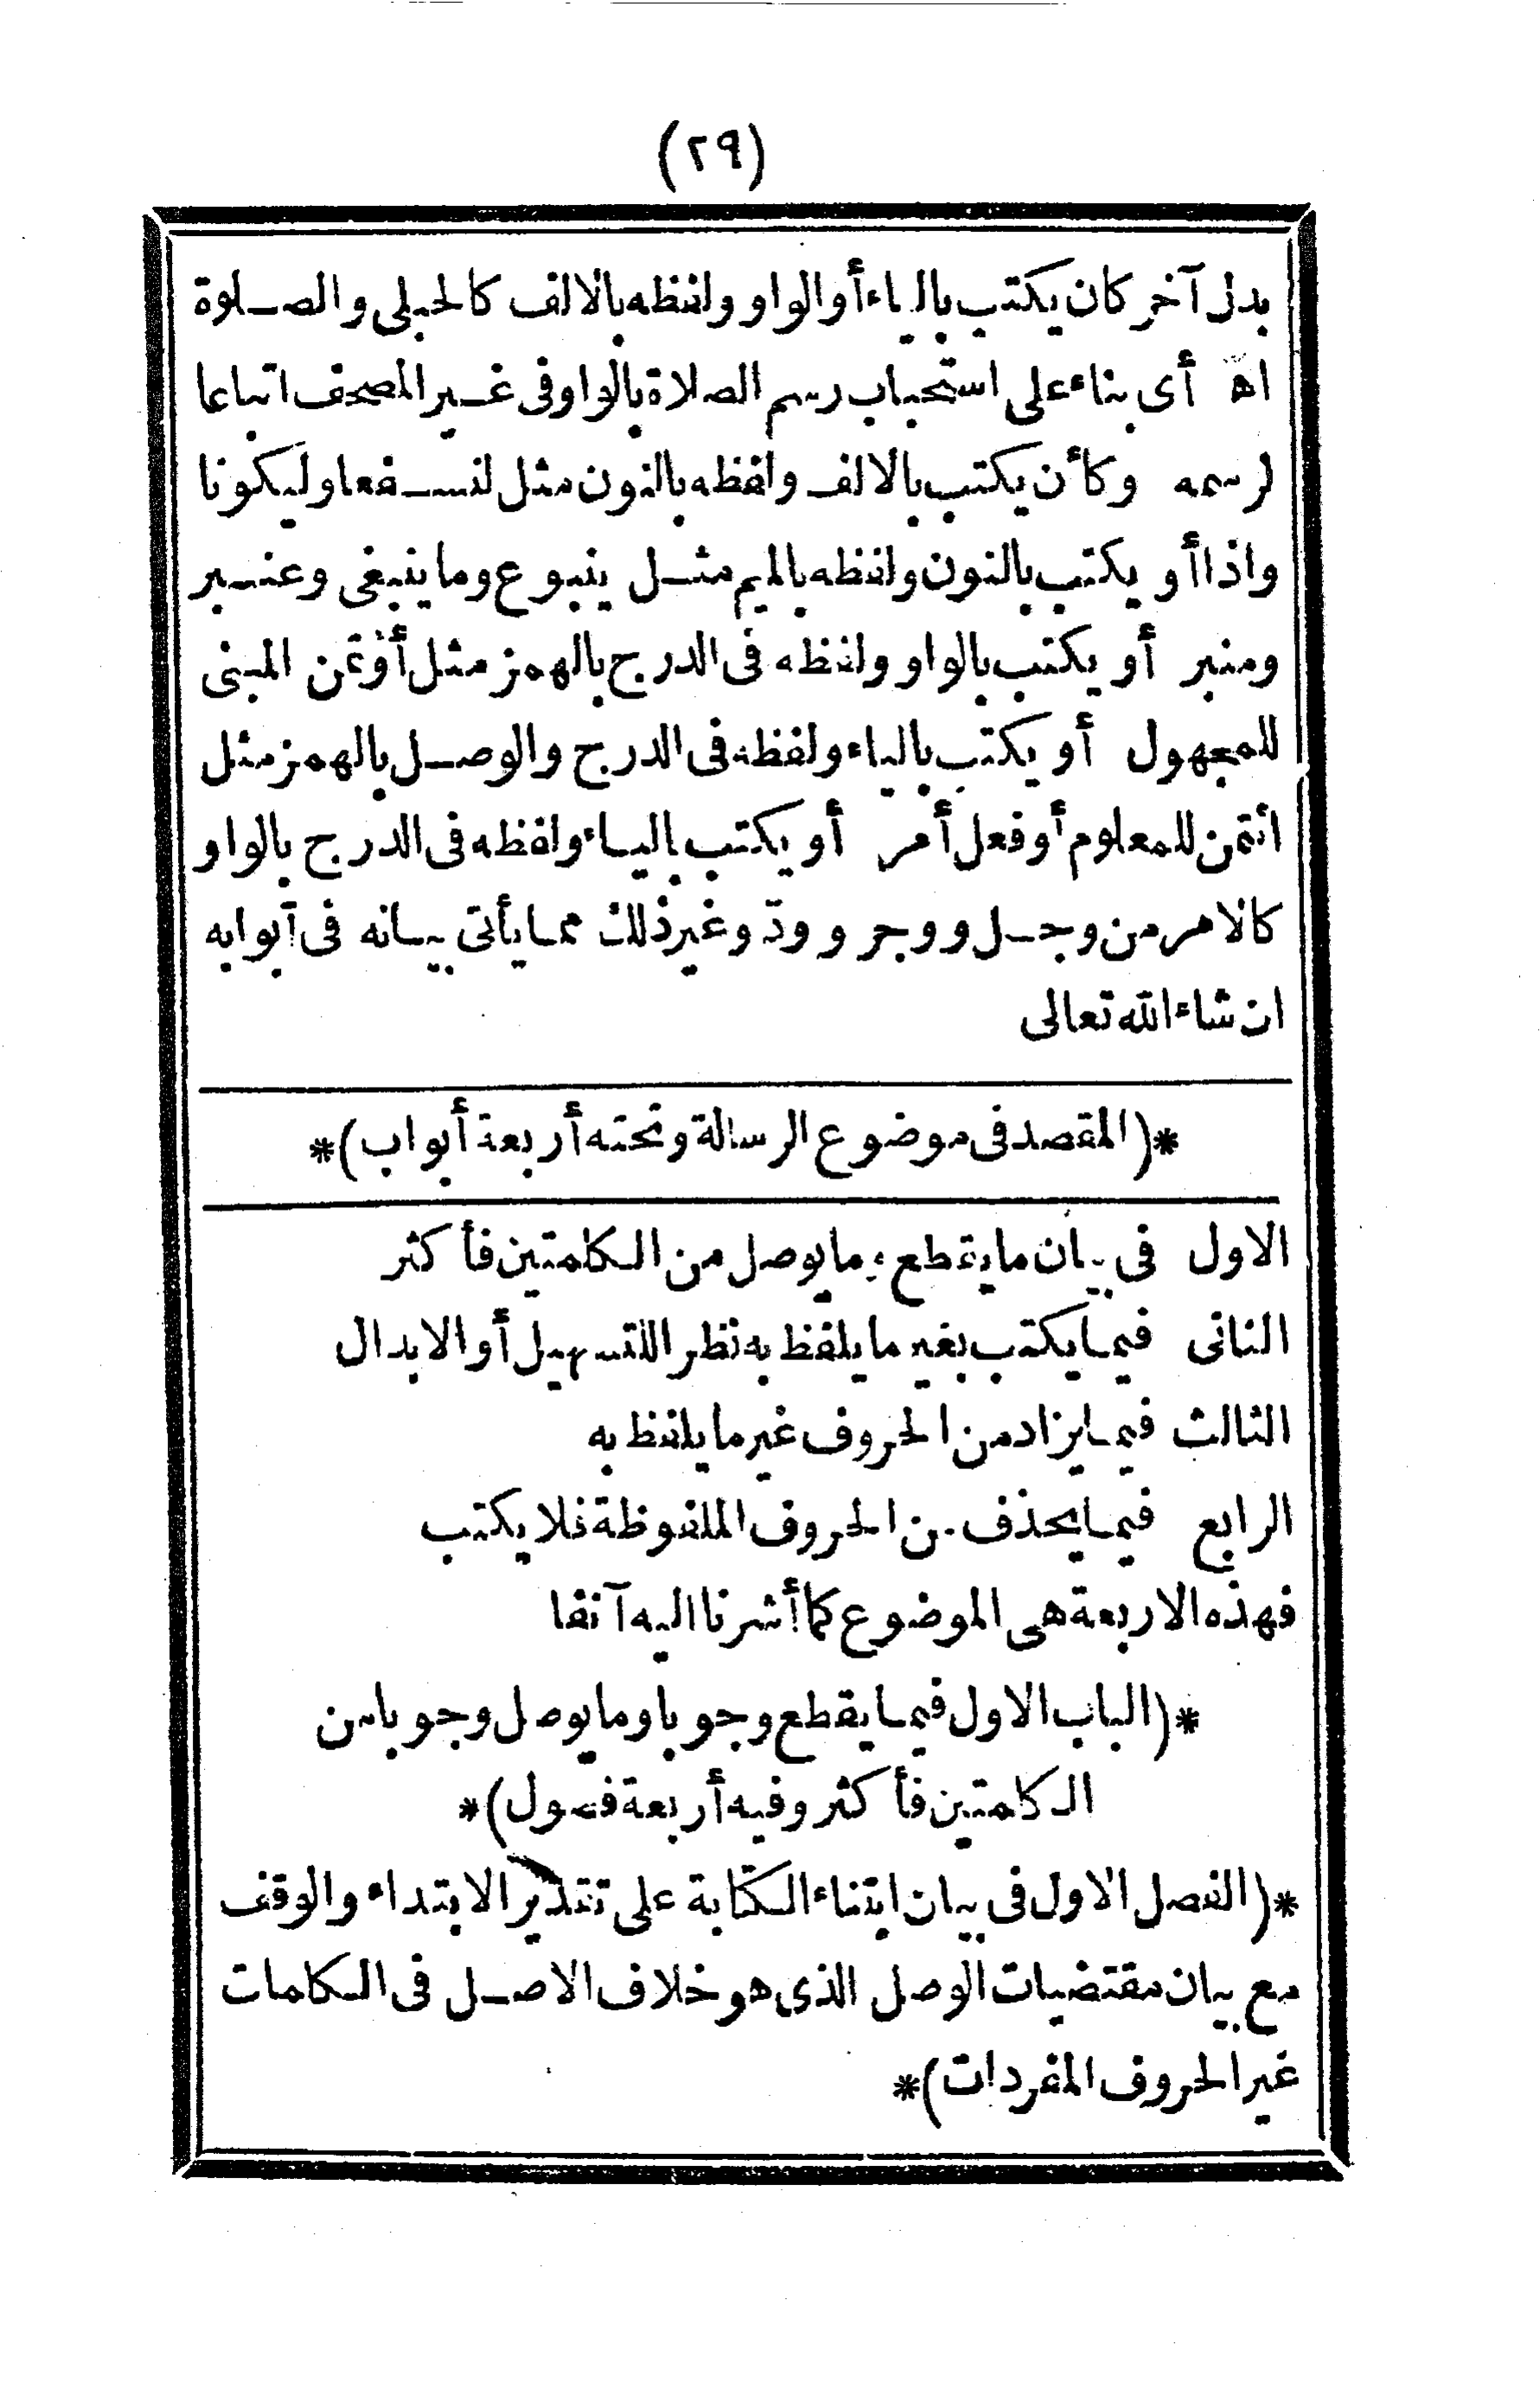 (٢٩)
بدل آخر كان يكتب بالياء أو الواو ولفظه بالالف كالحبلى والصلوة
اهـ أى بناء على استحباب رسم الصلاة بالواو فى غير المصحف اتباعا
لرسمه وكأن يكتب بالالف ولفظه بالنون مثل لنسفعا وليكونا
واذا أو يكتب بالنون ولفظه بالميم مثل ينبوع وما ينبغى وعنبر
ومنبر أو يكتب بالواو ولفظه فى الدرج بالهمز مثل أؤتمن المبنى
للمجهول أو يكتب بالياء ولفظه فى الدرج والوصل بالهمز مثل
ائتمن للمعلوم أو فعل أمر أو يكتب بالياء ولفظه فى الدرج بالواو
كالامر من وجل ووجر وودّ وغير ذلك مما يأتى بيانه فى أبوابه
ان شاء الله تعالى
*(المقصد فى موضوع الرسالة وتحته أربعة أبواب)*
الاول فى بيان ما يقطع وما يوصل من الكلمتين فأكثر
الثانى فيما يكتب بغير ما يلفظ به نظرا للتسهيل أو الابدال
الثالث فيما يزاد من الحروف غير ما يلفظ به
الرابع فيما يحذف من الحروف الملفوظة فلا يكتب
فهذه الاربعة هى الموضوع كما أشرنا اليه آنفا
*(الباب الاول فيما يقطع وجوبا وما يوصل وجوبا من
الكلمتين فأكثر وفيه أربعة فصول)*
*(الفصل الاول فى بيان ابتناء الكتابة على تقدير الابتداء والوقف
مع بيان مقتضيات الوصل الذى هو خلاف الاصل فى الكلمات
غير الحروف المفردات)*